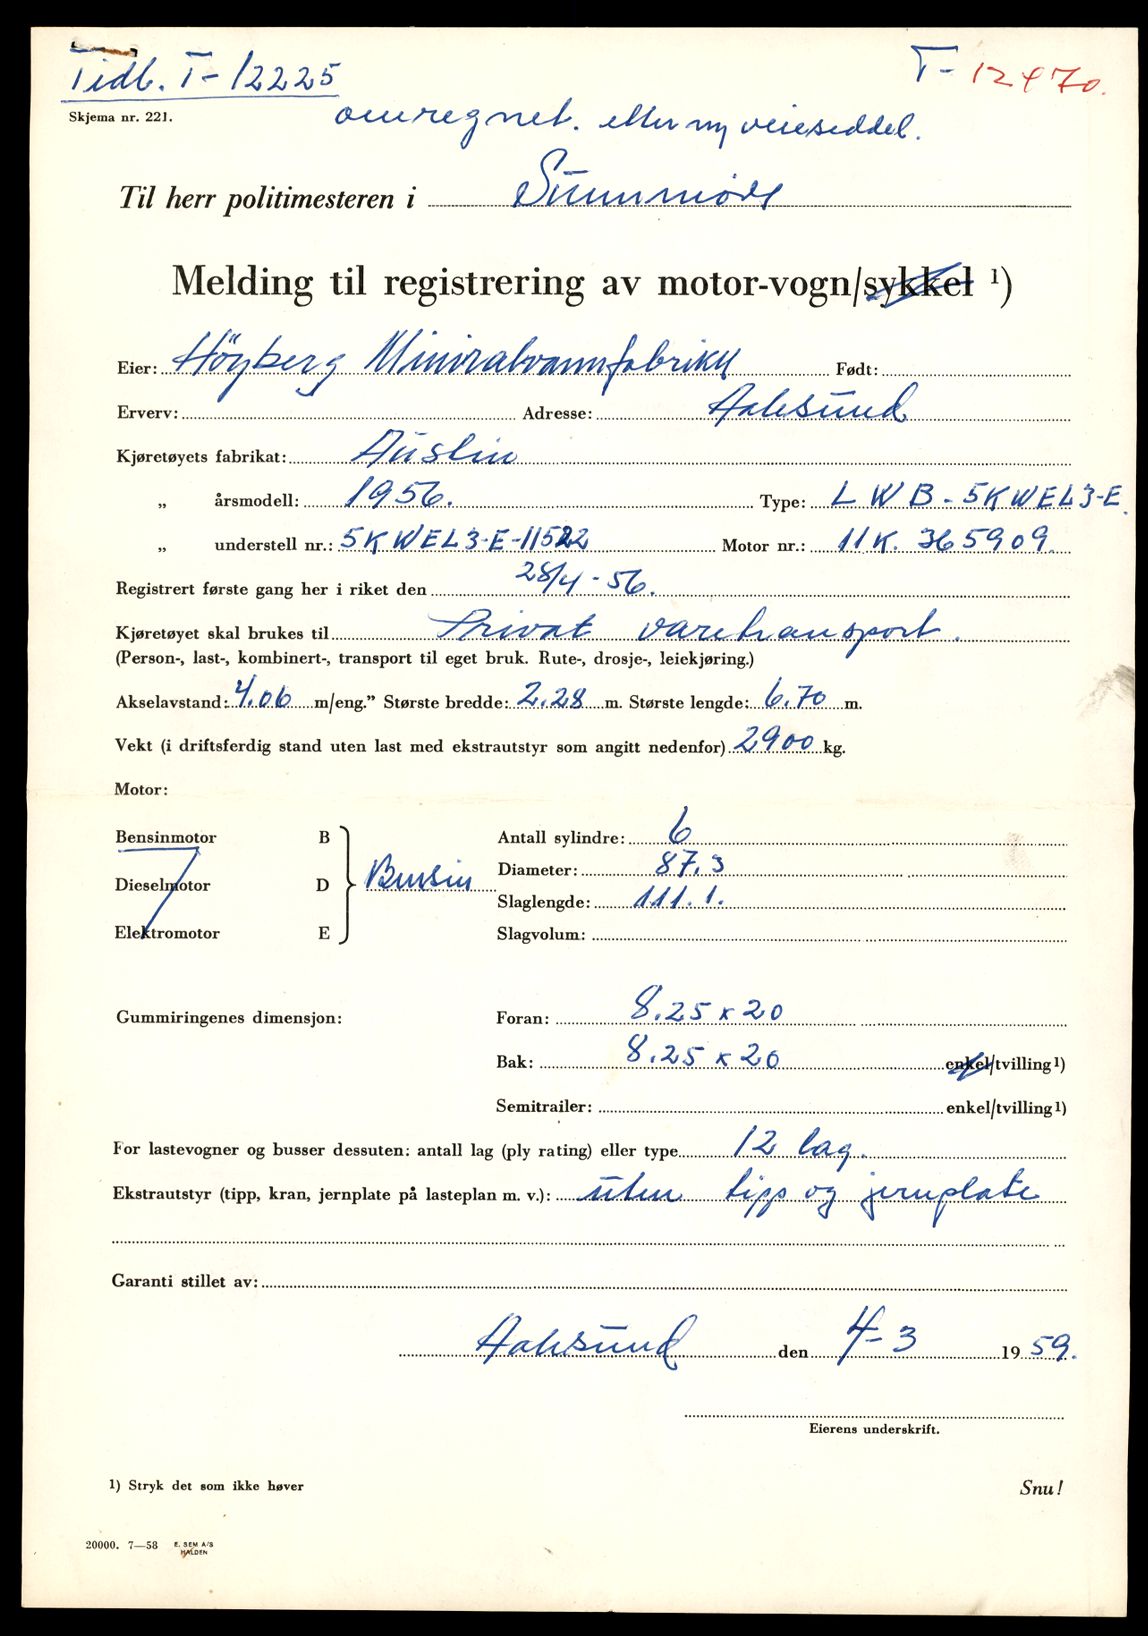 Tidl. T-12225
T- 12470.
Skjema nr. 221.
omregnet. etter ny veieseddel.
Til herr politimesteren i Sunnmøre
Melding til registrering av motor-vogn/sykkel ¹)
Eier: Höyberg Mineralvannfabrikk Født:
Erverv: Adresse: Aalesund
Kjøretøyets fabrikat: Austin
„ årsmodell: 1956. Type: LWB-5KWEL3-E.
„ understell nr.: 5KWEL3-E-11522 Motor nr.: 11K. 365909.
Registrert første gang her i riket den 28/4-56.
Kjøretøyet skal brukes til Privat varetransport.
(Person-, last-, kombinert-, transport til eget bruk. Rute-, drosje-, leiekjøring.)
Akselavstand: 4.06 m/eng.” Største bredde: 2.28 m. Største lengde: 6.70 m.
Vekt (i driftsferdig stand uten last med ekstrautstyr som angitt nedenfor) 2900 kg.
Motor:
Bensinmotor B Antall sylindre: 6
Diameter: 87.3
Dieselmotor D Bensin
Slaglengde: 111.1.
Elektromotor E Slagvolum:
Gummiringenes dimensjon: Foran: 8.25 x 20
Bak: 8.25 x 20 enkel/tvilling¹)
Semitrailer: enkel/tvilling¹)
For lastevogner og busser dessuten: antall lag (ply rating) eller type 12 lag.
Ekstrautstyr (tipp, kran, jernplate på lasteplan m. v.): uten tipp og jernplate
Garanti stillet av:
Aalesund den 4-3 1959.
Eierens underskrift.
1) Stryk det som ikke høver
Snu!
20000. 7—58 E. SEM A/S
HALDEN